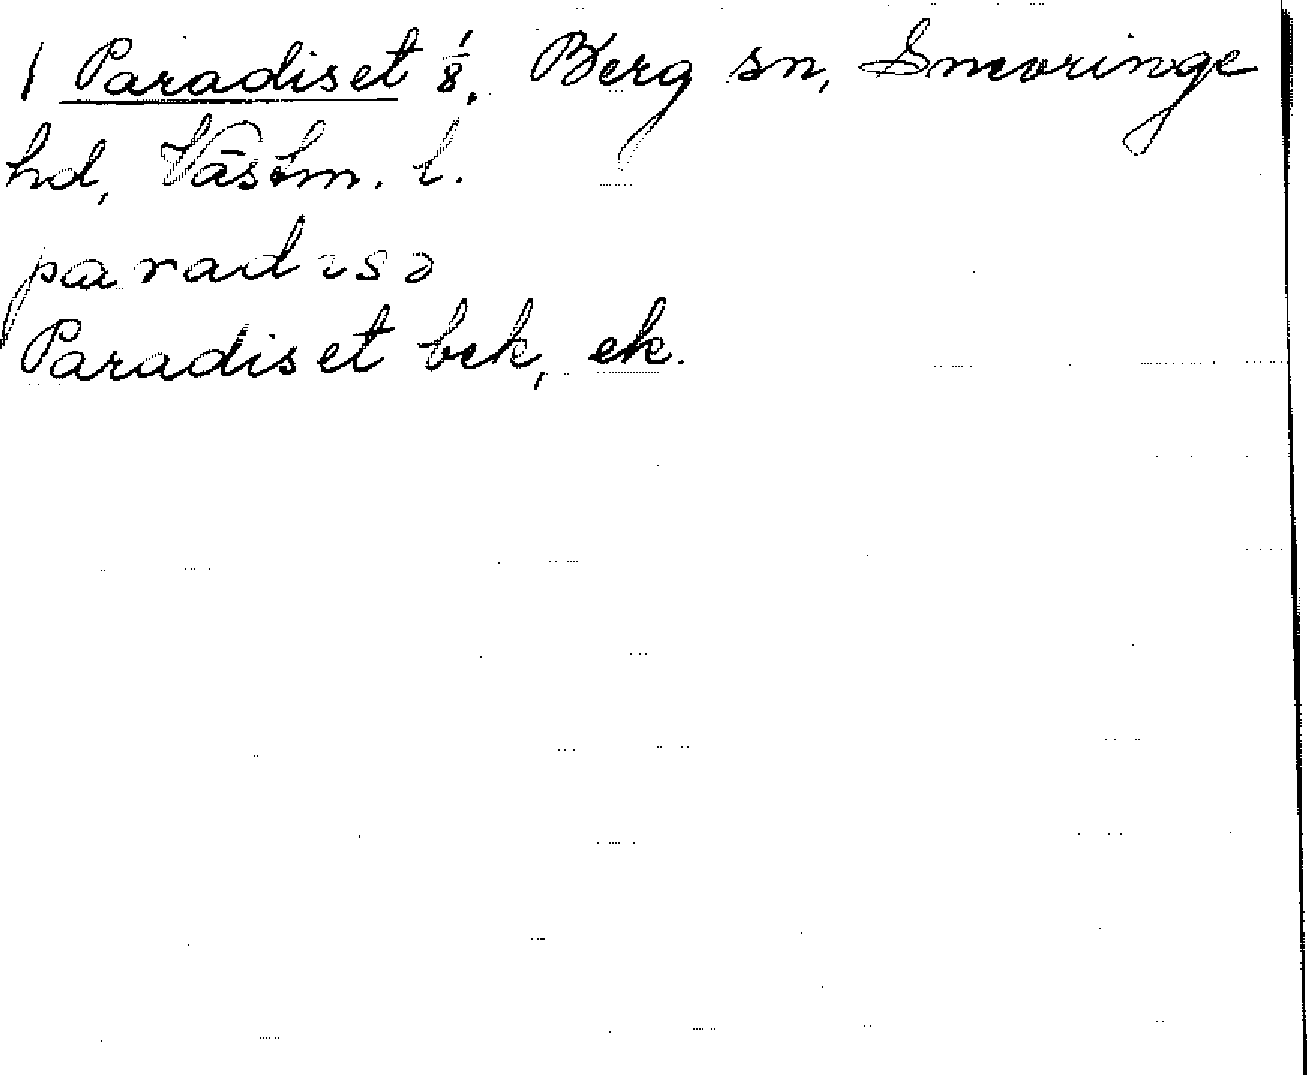 1 Paradiset 1/8, Berg sn, Snevringe
hd, Västm. l.
paradisə
Paradiset bek, ek.